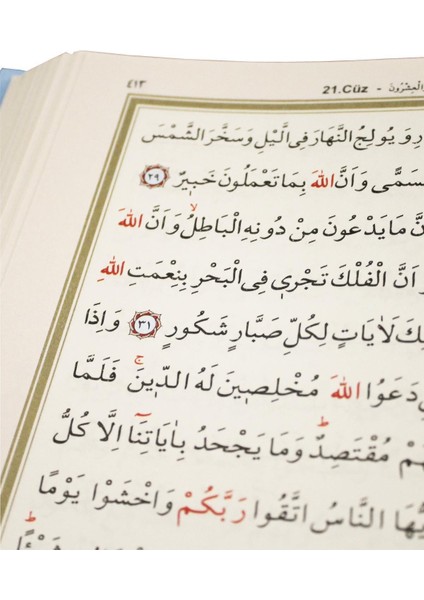 ٤١٣ 21.Cüz - الْعِشْرُونَ
وَيُولِجُ النَّهَارَ فِي الَّيْلِ وَسَخَّرَ الشَّمْسَ
مُسَمًّى وَاَنَّ اللّٰهَ بِمَا تَعْمَلُونَ خَبِيرٌ ﴿٢٩﴾
مَا يَدْعُونَ مِنْ دُونِهِ الْبَاطِلُ وَاَنَّ اللّٰهَ
اَنَّ الْفُلْكَ تَجْرِي فِي الْبَحْرِ بِنِعْمَتِ اللّٰهِ
لَاٰيَاتٍ لِكُلِّ صَبَّارٍ شَكُورٍ ﴿٣١﴾ وَاِذَا
دَعَوُا اللّٰهَ مُخْلِصِينَ لَهُ الدِّينَ فَلَمَّا
مُقْتَصِدٌ وَمَا يَجْحَدُ بِاٰيَاتِنَٓا اِلَّا كُلُّ
النَّاسُ اتَّقُوا رَبَّكُمْ وَاخْشَوْا يَوْمًا